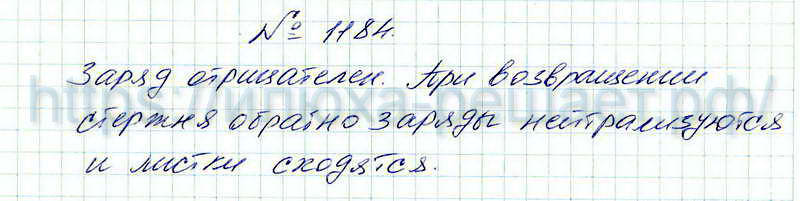 № 1184.
Заряд отрицателен. При возвращении
стержня обратно заряды нейтрализуются
и листки сходятся.